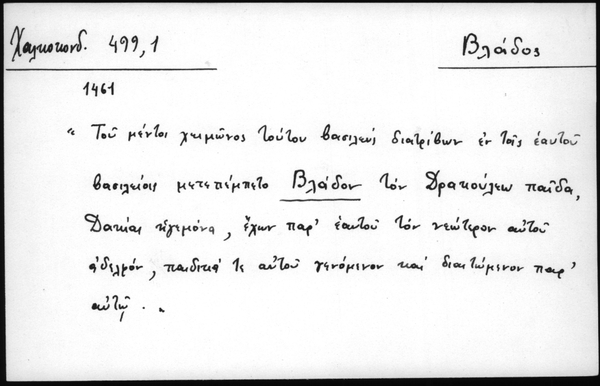 Χαλκοκονδ. 499,1
Βλάδος
1461
" Τοῦ μέντοι χειμῶνος τούτου βασιλεύς διατρίβων ἐν τοῖς ἑαυτοῦ
βασιλείοις μετεπέμπετο Βλάδον τόν Δρακούλεω παῖδα,
Δακίας ἡγεμόνα, ἔχων παρ' ἑαυτοῦ τόν νεώτερον αὐτοῦ
ἀδελφόν, παιδικά τε αὐτοῦ γενόμενον καί διαιτώμενον παρ'
αὐτῷ . "